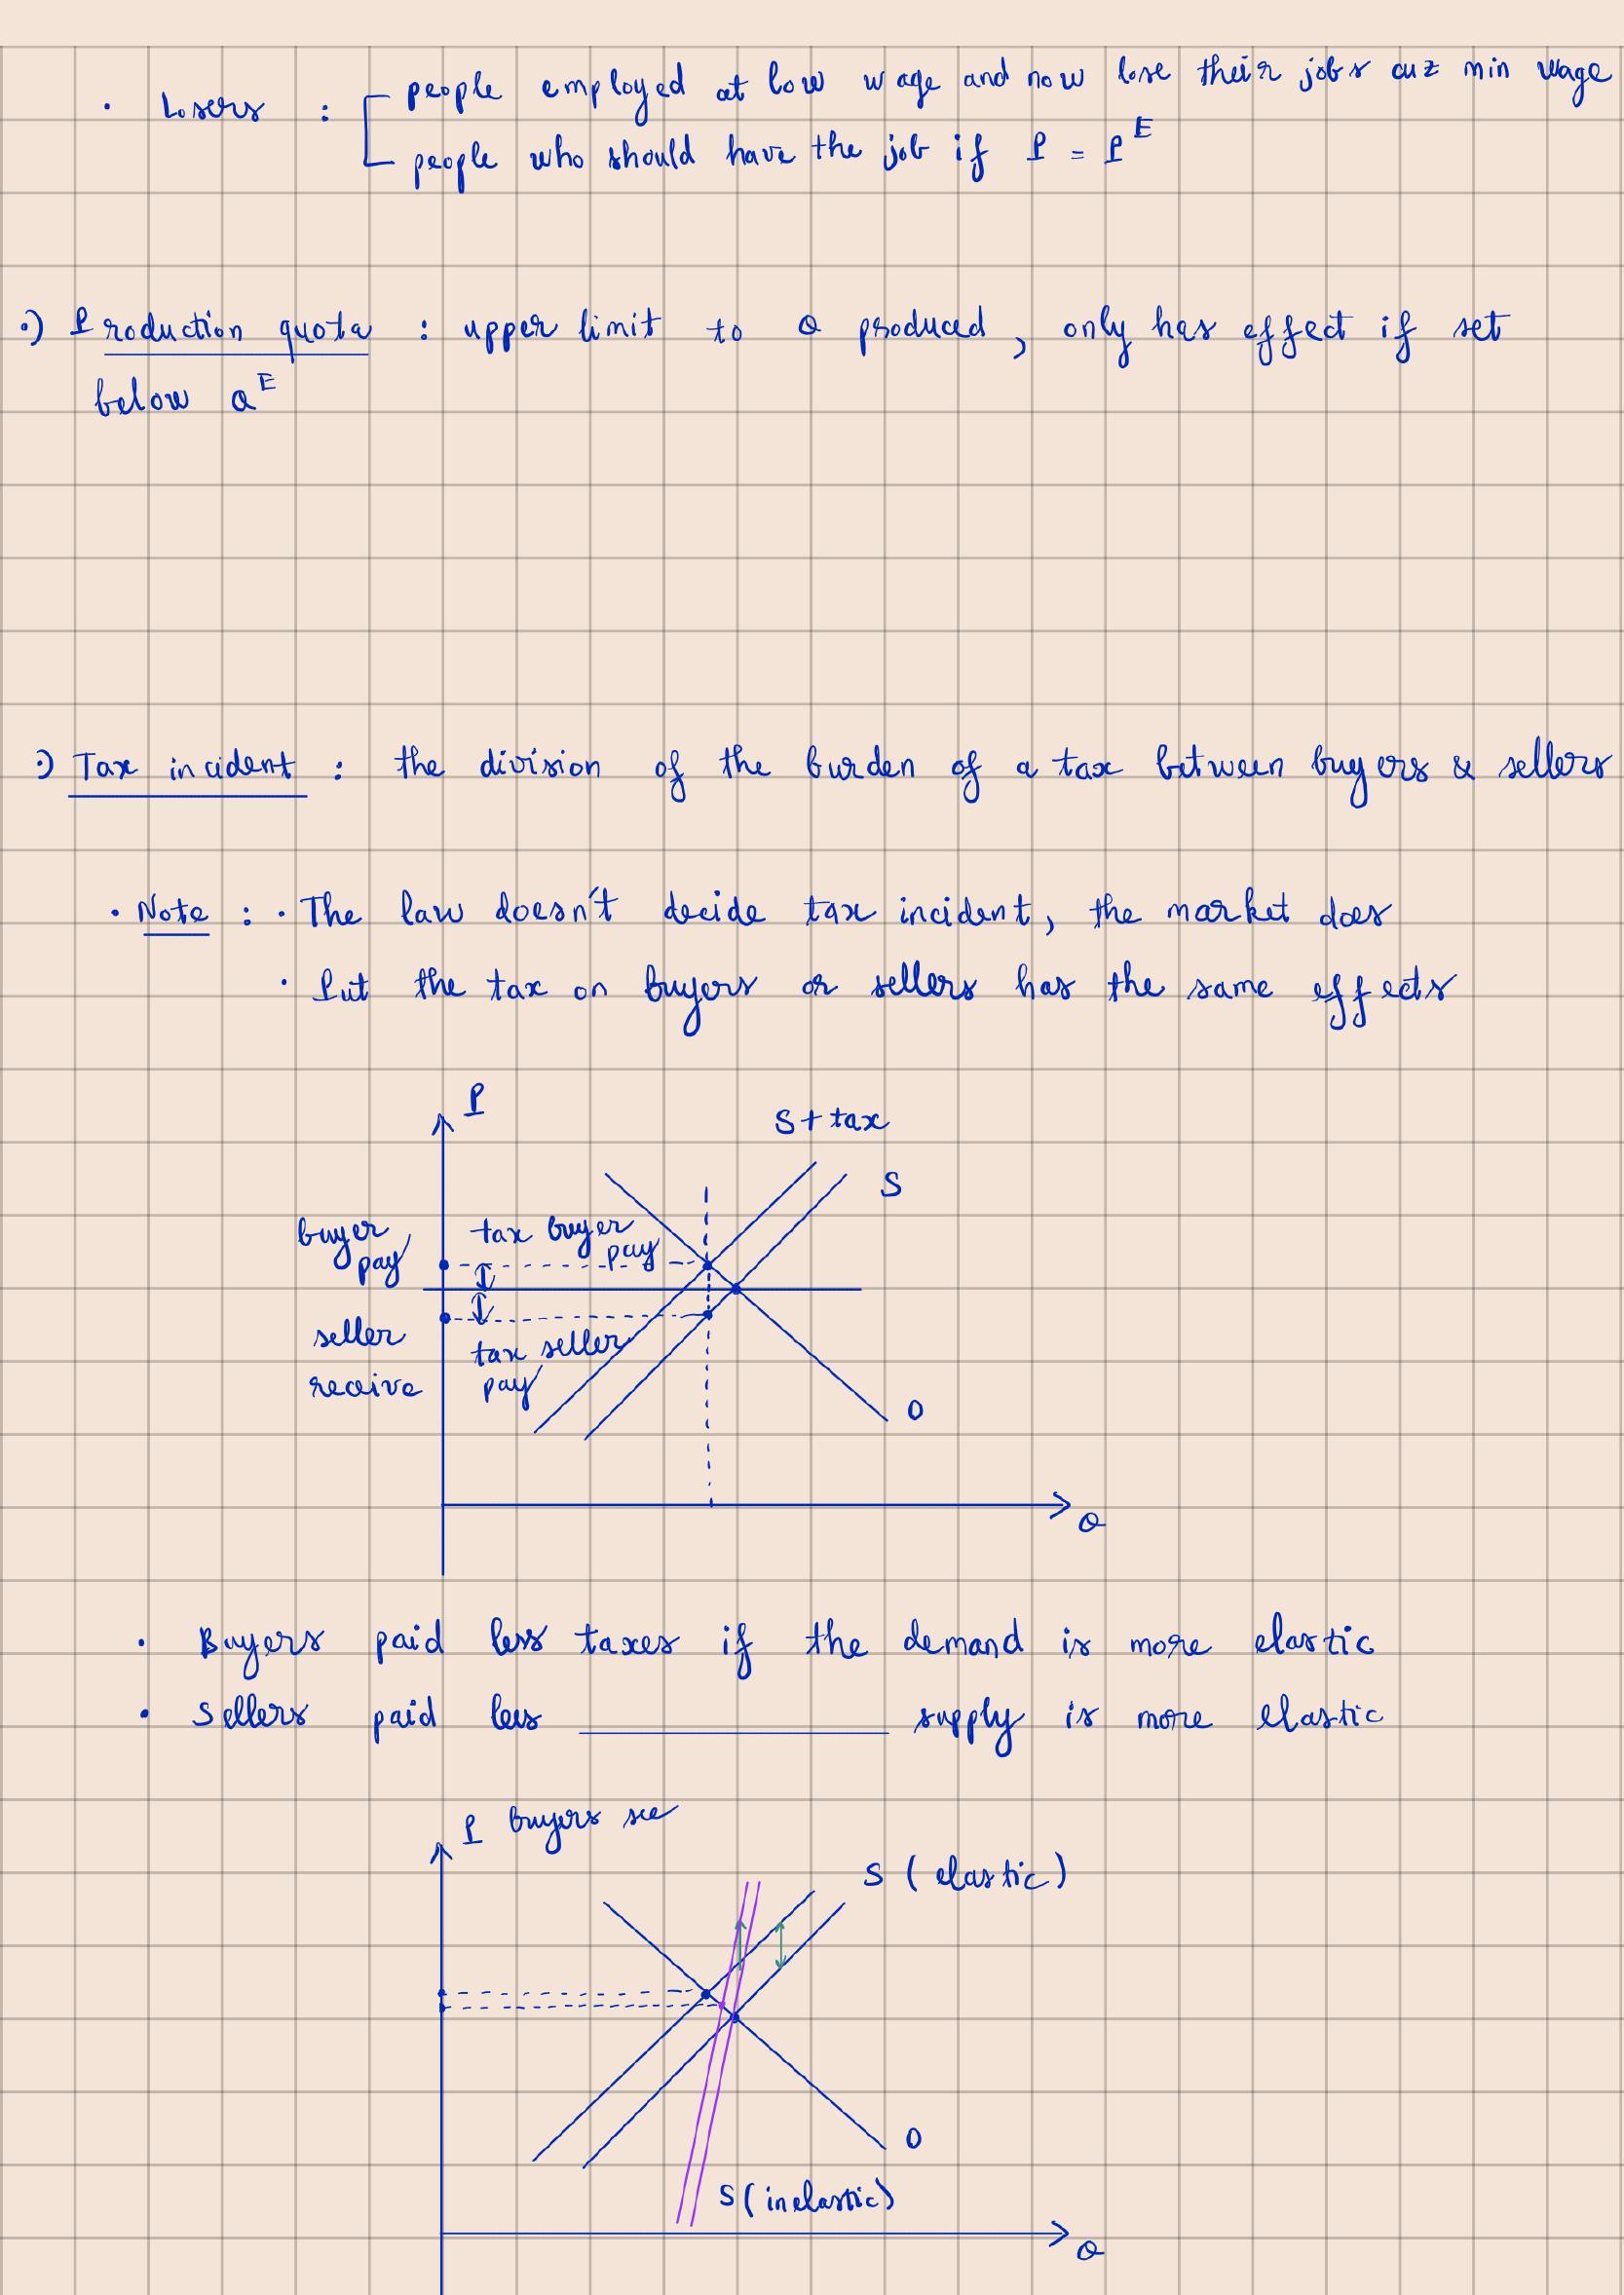 · Losers : people employed at low wage and now lose their jobs cuz min wage
people who should have the job if P = P^E
·) Production quota : upper limit to Q produced, only has effect if set
below Q^E
·) Tax incident : the division of the burden of a tax between buyers & sellers
· Note : · The law doesn't decide tax incident, the market does
· Put the tax on buyers or sellers has the same effects
P
S + tax
S
buyer pay
tax buyer pay
seller receive
tax seller pay
D
Q
· Buyers paid less taxes if the demand is more elastic
· Sellers paid less ________ supply is more elastic
P buyers see
S (elastic)
D
S (inelastic)
Q